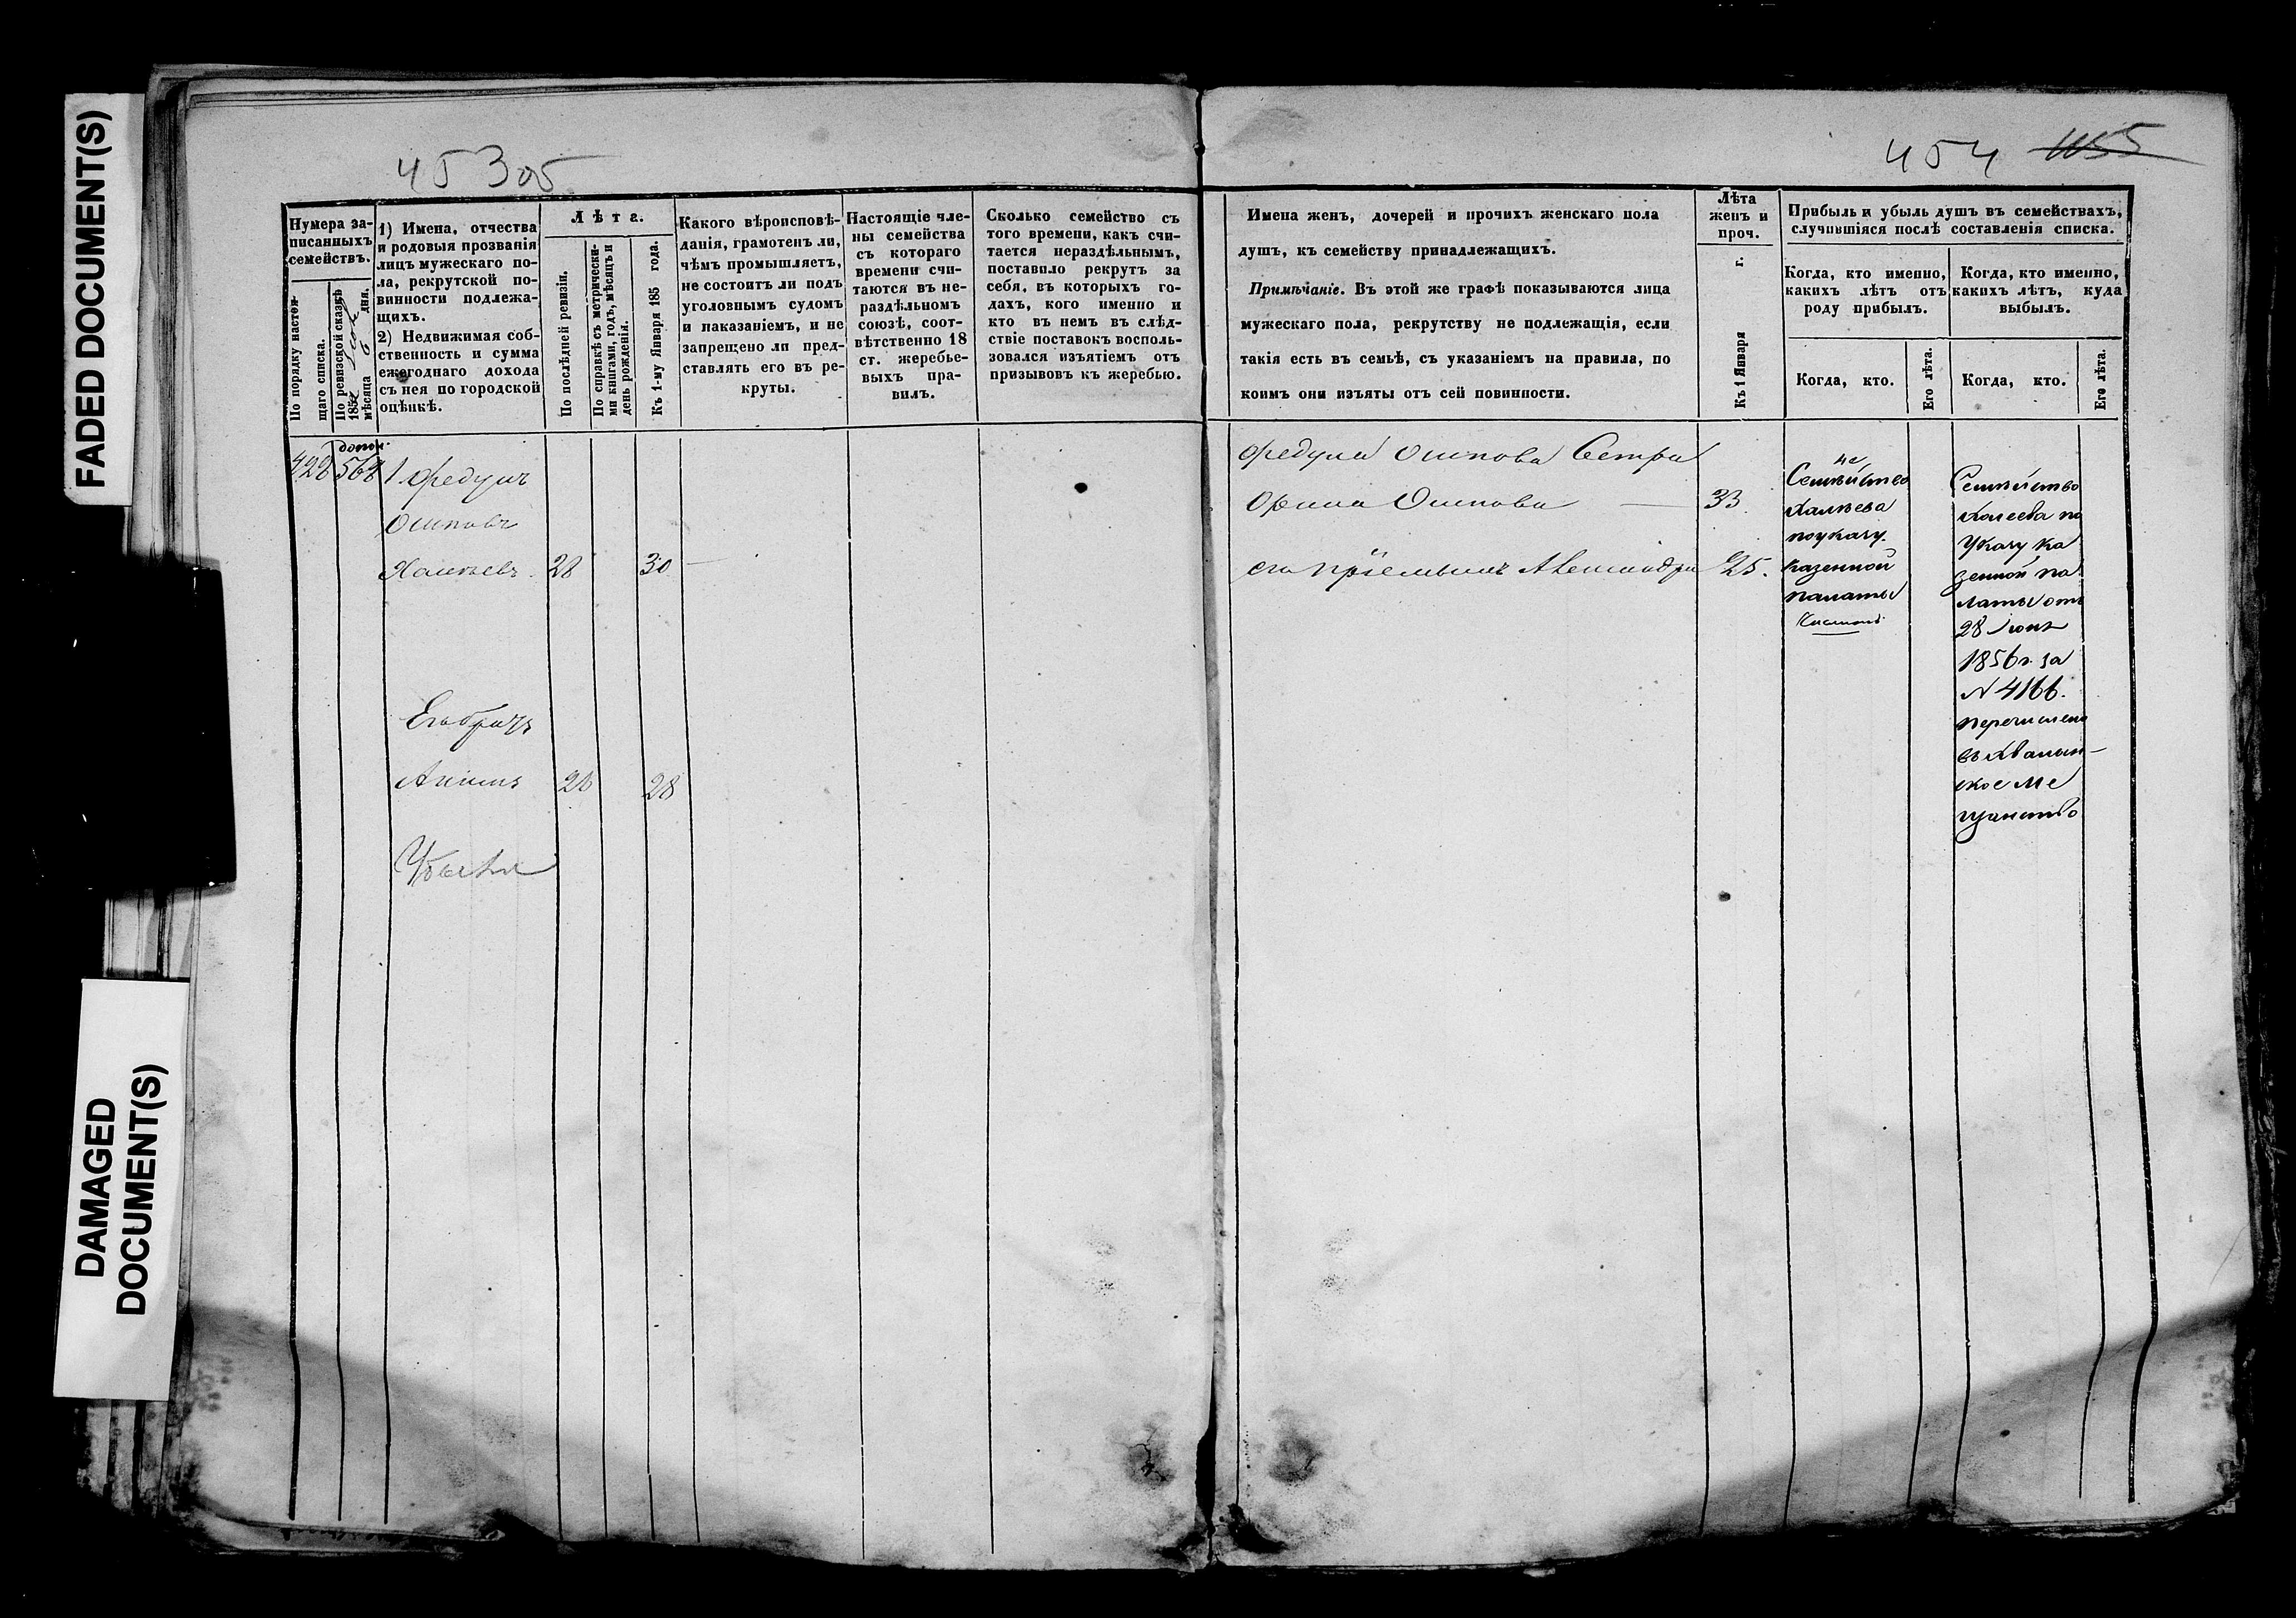 FADED DOCUMENT(S)
DAMAGED
DOCUMENT(S)
453об
Нумера за-
писанныхъ
семействъ.
По порядку настоя-
щаго списка.
По ревизской сказкѣ
185
мѣсяца 6 дня.
1) Имена, отчества
и родовыя прозванія
лицъ мужескаго по-
ла, рекрутской по-
винности подлежа-
щихъ.
2) Недвижимая соб-
ственность и сумма
ежегоднаго дохода
съ нея по городской
оцѣнкѣ.
Лѣта.
По послѣдней ревизіи.
По справкѣ съ метрически-
ми книгами, годъ, мѣсяцъ и
день рожденія.
Къ 1-му Января 185 года.
Какого вѣроисповѣ-
данія, грамотенъ ли,
чѣмъ промышляетъ,
не состоитъ ли подъ
уголовнымъ судомъ
и наказаніемъ, и не
запрещено ли пред-
ставлять его въ ре-
круты.
Настоящіе чле-
ны семейства
съ котораго
времени счи-
таются въ не-
раздѣльномъ
союзѣ, соот-
вѣтственно 18
ст. жеребье-
выхъ пра-
вилъ.
Сколько семейство съ
того времени, какъ счи-
тается нераздѣльнымъ,
поставило рекрутъ за
себя, въ которыхъ го-
дахъ, кого именно и
кто въ немъ въ слѣд-
ствіе поставокъ восполь-
зовался изъятіемъ отъ
призывовъ къ жеребью.
допол.
428 568 1 Федулъ
Осиповъ
Халѣевъ. 28 30 —
Его братъ
Акимъ 26 28
454 455
Имена женъ, дочерей и прочихъ женскаго пола
душъ, къ семейству принадлежащихъ.
Примѣчаніе. Въ этой же графѣ показываются лица
мужескаго пола, рекрутству не подлежащія, если
такія есть въ семьѣ, съ указаніемъ на правила, по
коимъ они изъяты отъ сей повинности.
Лѣта
женъ и
проч.
Къ 1 Января г.
Прибыль и убыль душъ въ семействахъ,
случившіяся послѣ составленія списка.
Когда, кто именно,
какихъ лѣтъ отъ
роду прибылъ.
Когда, кто именно,
какихъ лѣтъ, куда
выбылъ.
Когда, кто.
Его лѣта.
Когда, кто.
Его лѣта.
Федула Осипова Сестра
Орина Осипова — 33
его пріемышъ Александра 25.
Семѣйство
Халѣева
по указу
казенной
палаты
Семѣйство
Халеева по
Указу ка
зенной па
латы отъ
28 Іюня
1856 г. за
N 4166.
перечислено
въ Хвалын-
ское ме
щанство